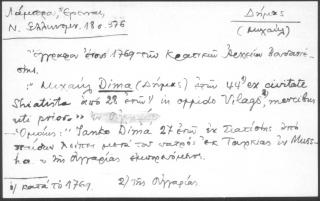 Λάμπρου, Έρευναι, Δήμας
Ν. Ελληνομν. 18 σ. 376 (Μιχαήλ)
Έγγραφα έτους 1769 των Κρατικών Αρχείων Βουδαπέστης.
"Μιχαήλ Dima (Δήμας) ετών 44 ex civitate
Shiatista από 28 ετών in oppido Világos mercibus
uti prior"
Ομοίως: "Janko Dima 27 ετών εκ Σιατίστης από
λείπει μετά του πατρός εκ Τουρκίας
της Ουγγαρίας εμπορευόμενος.
1) κατά το 1769. 2) της Ουγγαρίας